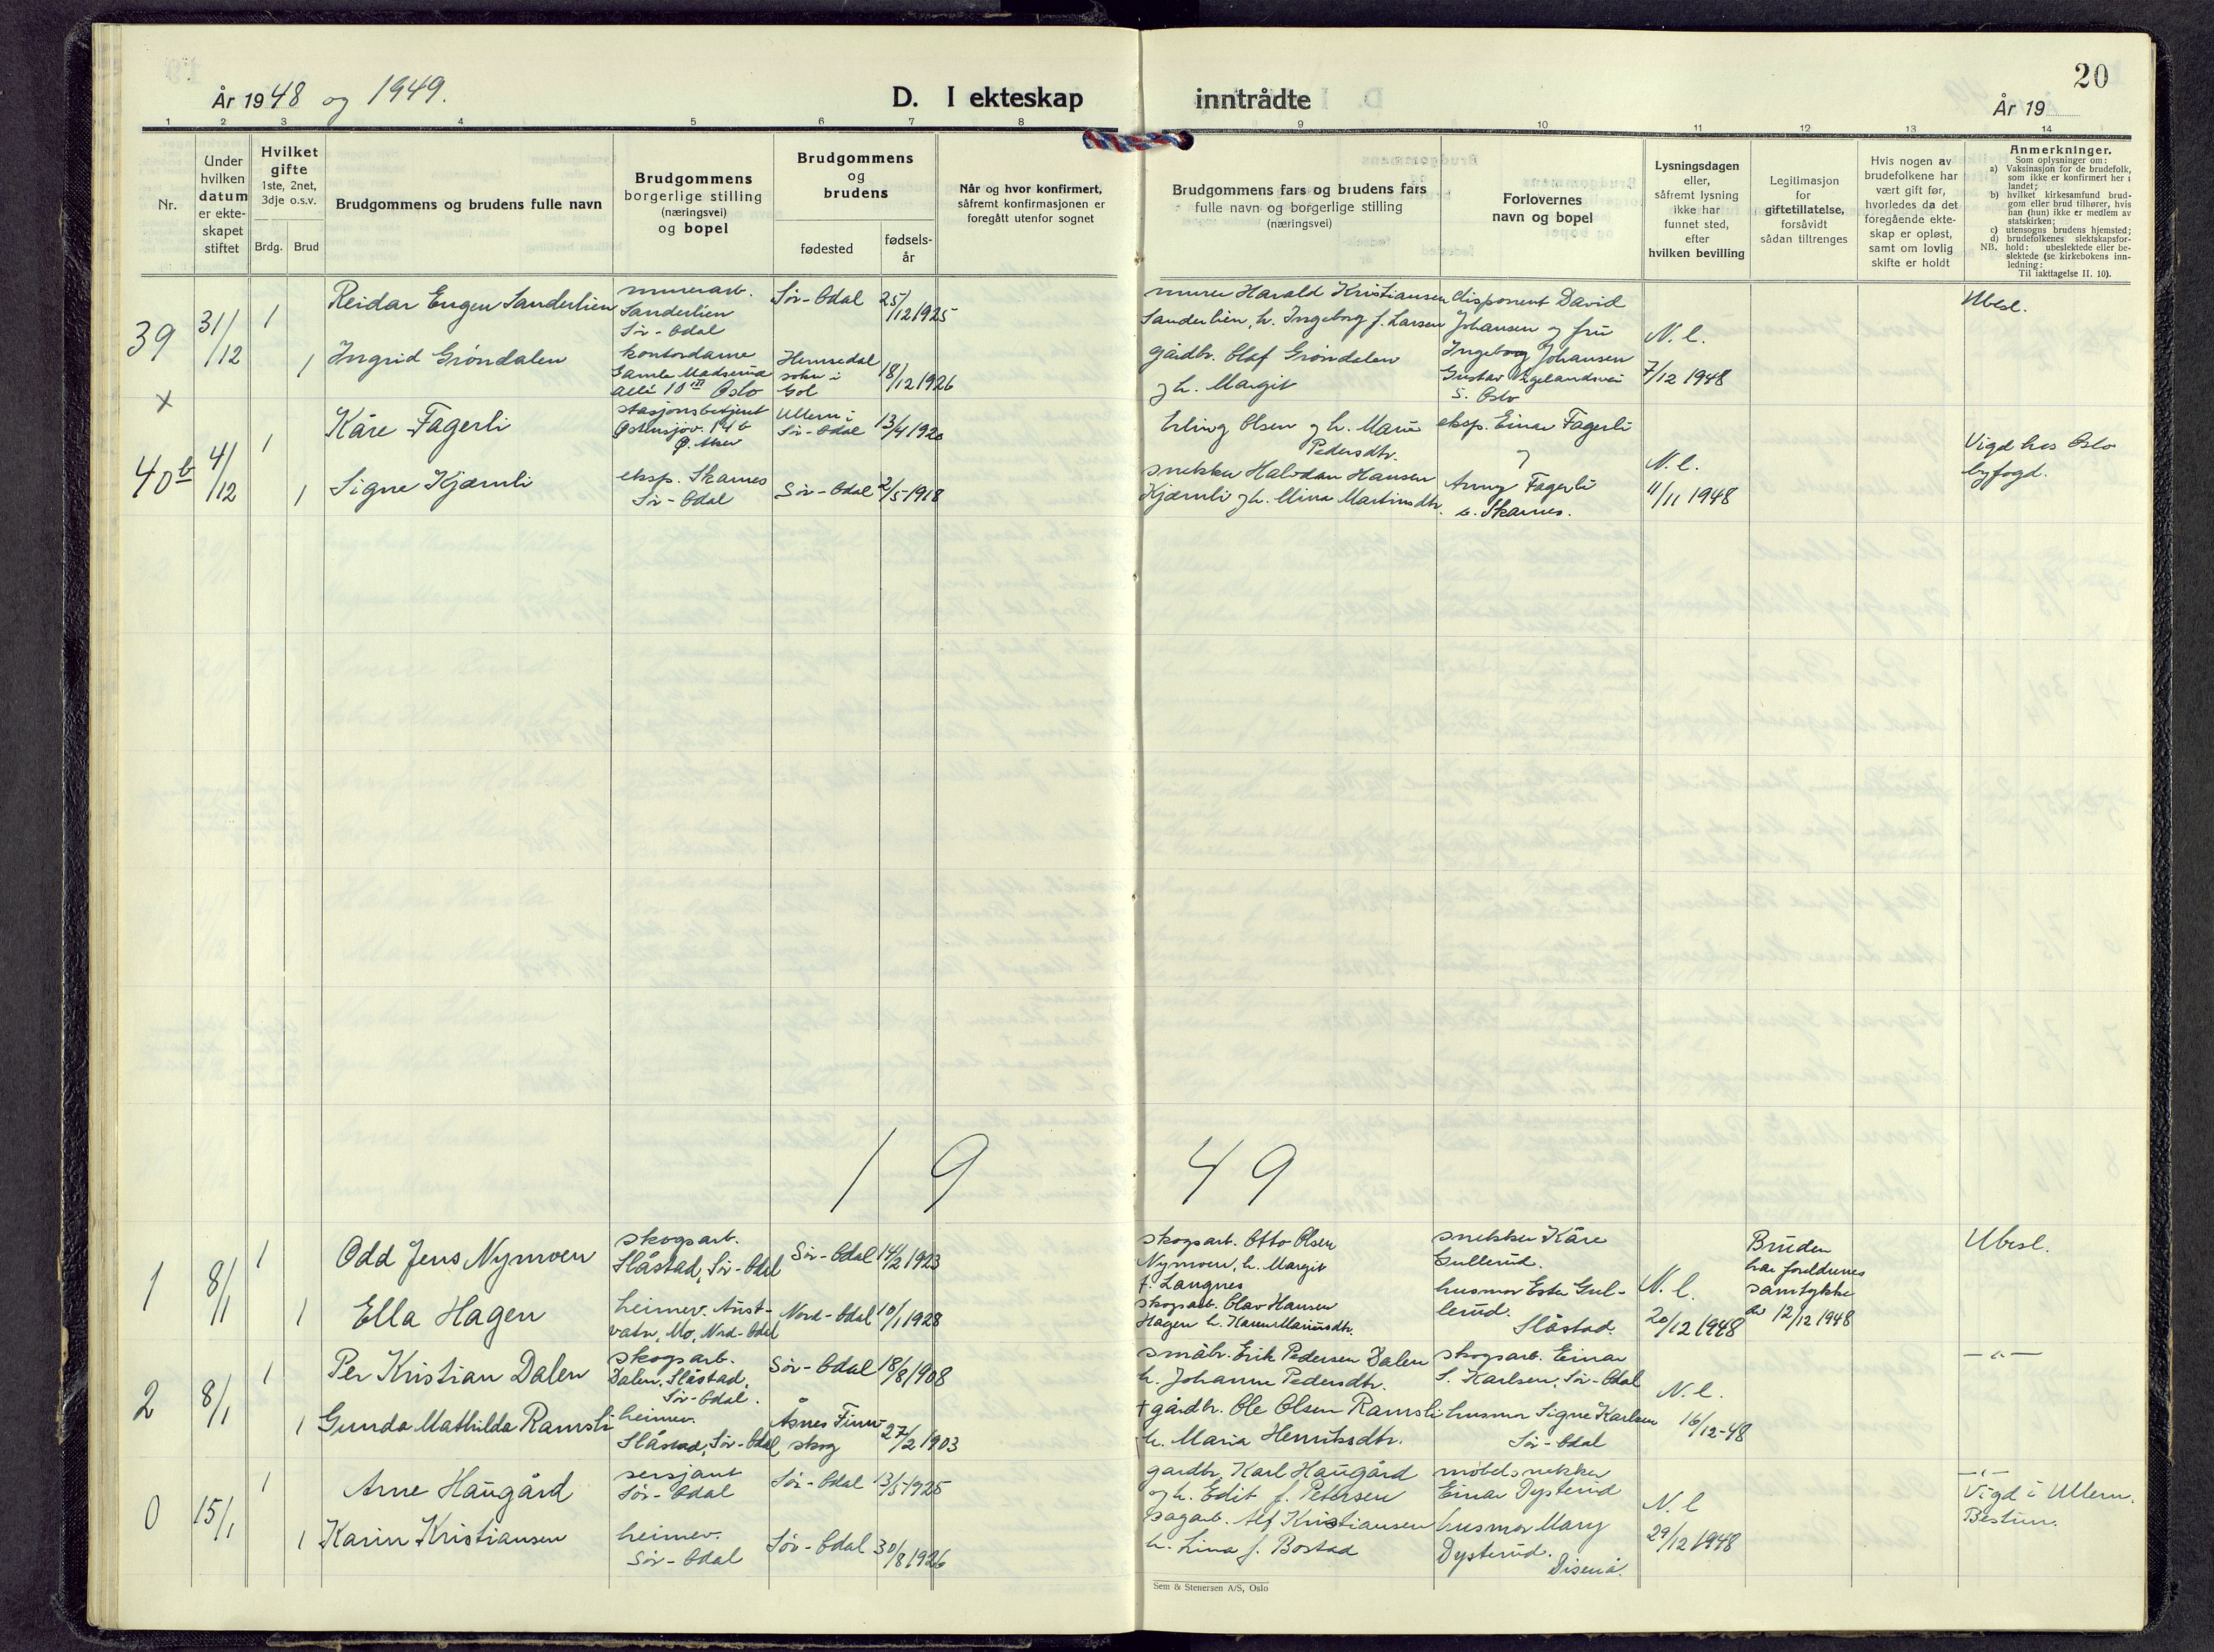 20
År 1948 og 1949.
D. I ekteskap inntrådte
År 19
1 2 3 4 5 6 7 8 9 10 11 12 13 14
Nr.
Under
hvilken
datum
er ekte-
skapet
stiftet
Hvilket
gifte
1ste, 2net,
3dje o.s.v.
Brdg. Brud
Brudgommens og brudens fulle navn
Brudgommens
borgerlige stilling
(næringsvei)
og bopel
Brudgommens
og
brudens
fødested
fødsels-
år
Når og hvor konfirmert,
såfremt konfirmasjonen er
foregått utenfor sognet
Brudgommens fars og brudens fars
fulle navn og borgerlige stilling
(næringsvei)
Forlovernes
navn og bopel
Lysningsdagen
eller,
såfremt lysning
ikke har
funnet sted,
efter
hvilken bevilling
Legitimasjon
for
giftetillatelse,
forsåvidt
sådan tiltrenges
Hvis nogen av
brudefolkene har
vært gift før,
hvorledes da det
foregående ekte-
skap er opløst,
samt om lovlig
skifte er holdt
Anmerkninger.
Som oplysninger om:
a) Vaksinasjon for de brudefolk,
som ikke er konfirmert her i
landet;
b) hvilket kirkesamfund brud-
gom eller brud tilhører, hvis
han (hun) ikke er medlem av
statskirken;
c) utensogns brudens hjemsted;
d) brudefolkenes slektskapsfor-
NB. hold: ubeslektede eller be-
slektede (se kirkebokens inn-
ledning:
Til iakttagelse II. 10).
39
31/12
1
Reidar Eugen Sanderlien
murerarb.
Sanderlien
Sør-Odal
Sør-Odal
25/12 1925
murer Harald Kristiansen
Sanderlien, h. Ingeborg f. Larsen
disponent David
Johansen og fru
Ingeborg Johansen
Gustav Vigelandsvei
5. Oslo
N. l.
7/12 1948
Ubesl.
1
Ingrid Grøndalen
kontordame
Gamle Madserud
allé 10 III Oslo
Hemsedal
sokn i
Gol
18/12 1926
gårdbr. Olaf Grøndalen
og h. Margit
x
40b
4/12
1
Kåre Fagerli
stasjonsbetjent
Østensjøv. 14 b
Ø. Aker
Ullern i
Sør-Odal
13/4 1920
Erling Olsen og h. Marie
Pedersdtr.
eksp. Einar Fagerli
og
Anny Fagerli
b. Skarnes.
N. l.
11/11 1948
Vigd hos Oslo
byfogd.
1
Signe Kjærnli
eksp. Skarnes
Sør-Odal
Sør-Odal
2/5-1918
snekker Halvdan Hansen
Kjærnli og h. Mina Martinsdtr.
1949
1
8/1
1
Odd Jens Nymoen
skogsarb.
Slåstad, Sør-Odal
Sør-Odal
14/2 1923
skogsarb. Otto Olsen
Nymoen, h. Margit
f. Langnes
snekker Kåre
Gullerud.
husmor Ester Gul-
lerud.
Slåstad.
N. l.
20/12 1948
Bruden
har foreldrenes
samtykke
av 12/12 1948
Ubesl.
1
Ella Hagen
heimev. Aust-
vatn, Mo, Nord-Odal
Nord-Odal
10/1 1928
skogsarb. Olav Hansen
Hagen h. Karen Mariusdtr.
2
8/1
1
Per Kristian Dalen
skogsarb.
Dalen, Slåstad,
Sør-Odal.
Sør-Odal
18/8 1908
småbr. Erik Pedersen Dalen
h. Johanne Pedersdtr.
skogsarb. Einar
S. Karlsen, Sør-Odal
husmor Signe Karlsen
Sør-Odal
N. l.
16/12-48
—"—
1
Gunda Mathilda Ramsli
heimev.
Slåstad, Sør-Odal
Åsnes Finn-
skog
27/2 1903
† gårdbr. Ole Olsen Ramsli
h. Maria Henriksdtr.
0
15/1
1
Arne Haugård
sersjant
Sør-Odal
Sør-Odal
13/5-1925
gardbr. Karl Haugård
og h. Edit f. Petersen
møbelsnekker
Einar Dysterud
husmor Mary
Dysterud.
Disenå.
N. l
29/12 1948
—"—
Vigd i Ullern.
Bestum.
1
Karin Kristiansen
heimev.
Sør-Odal
Sør-Odal
30/8 1926
sagarb. Alf Kristiansen
h. Lina f. Bostad
Sem & Stenersen A/S, Oslo